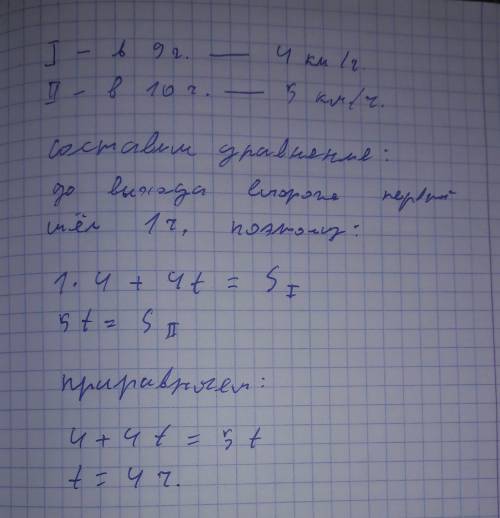 I - в 9 г. — 4 км/г.
II - в 10 г. — 5 км/ч.
Составим уравнение:
до выхода второго первый
шёл 1 ч, поэтому:
1 · 4 + 4t = S I
5t = S II
приравняем:
4 + 4t = 5t
t = 4 ч.